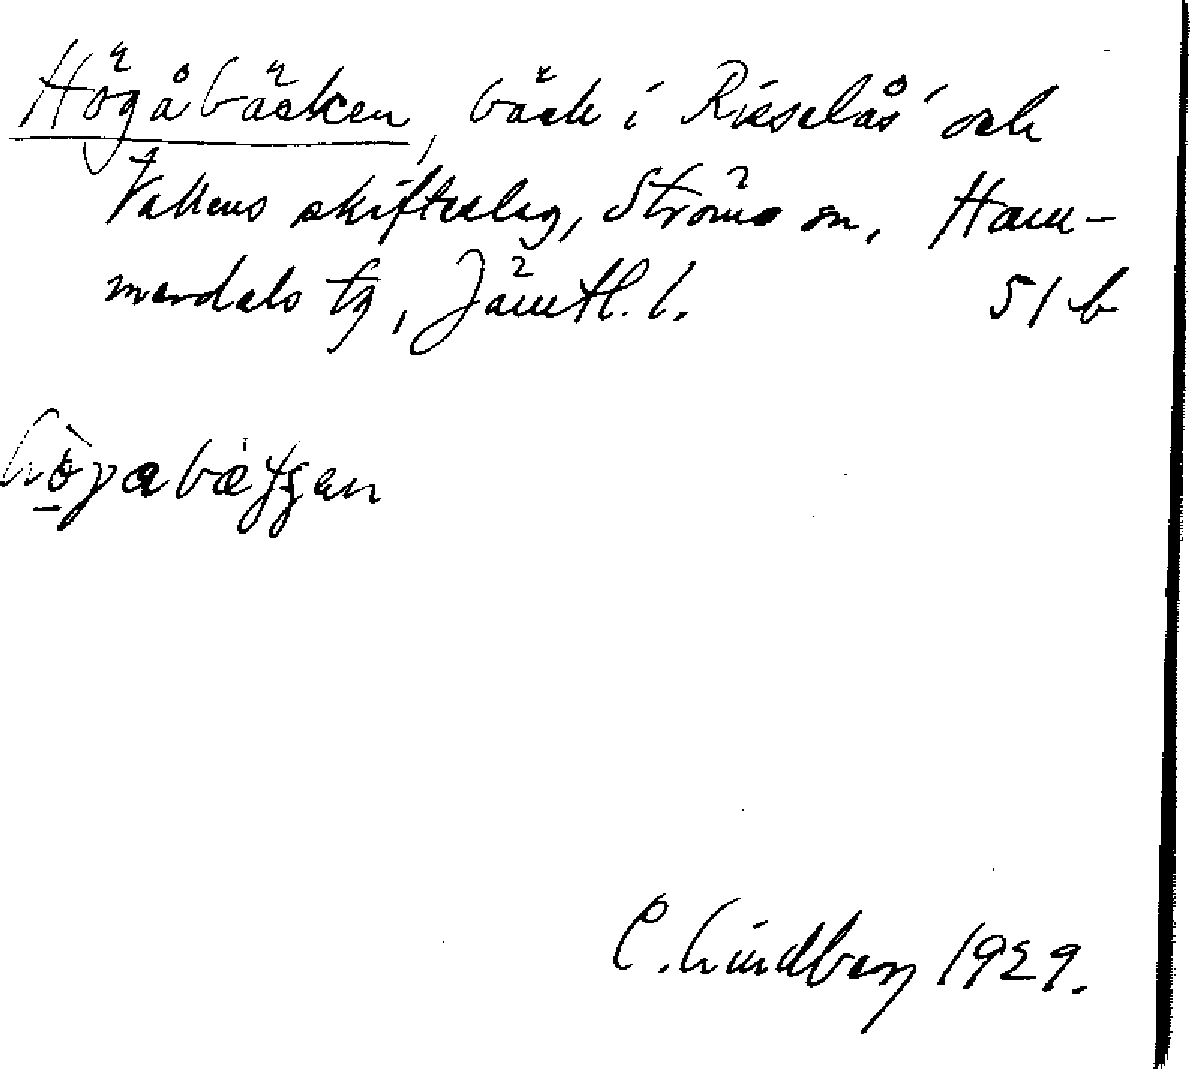 Högåbäcken, bäck i Risselås och
Vallens skifteslag, Ströms sn, Ham-
merdals tg, Jämtl. l. 51 b
C. Lindberg 1929.